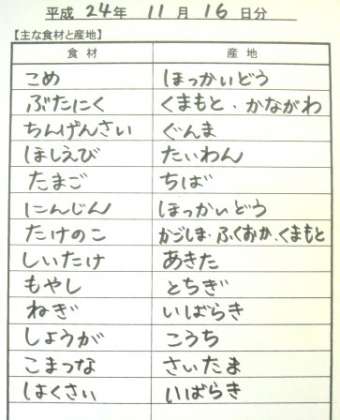 平成 24年 11月 16日分
【主な食材と産地】
食材 産地
こめ ほっかいどう
ぶたにく くまもと・かながわ
ちんげんさい ぐんま
ほしえび たいわん
たまご ちば
にんじん ほっかいどう
たけのこ かごしま・ふくおか・くまもと
しいたけ あきた
もやし とちぎ
ねぎ いばらき
しょうが こうち
こまつな さいたま
はくさい いばらき